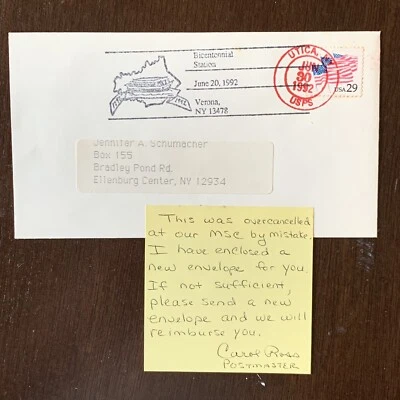 Bicentennial
Station
June 20, 1992
Verona,
NY 13478
UTICA, NY
JUN
30
1992
USPS
USA 29
Jennifer A. Schumacher
Box 155
Bradley Pond Rd.
Ellenburg Center, NY 12934
This was overcancelled
at our MSC by mistake.
I have enclosed a
new envelope for you.
If not sufficient,
please send a new
envelope and we will
reimburse you.
Carol Ross
POSTMASTER